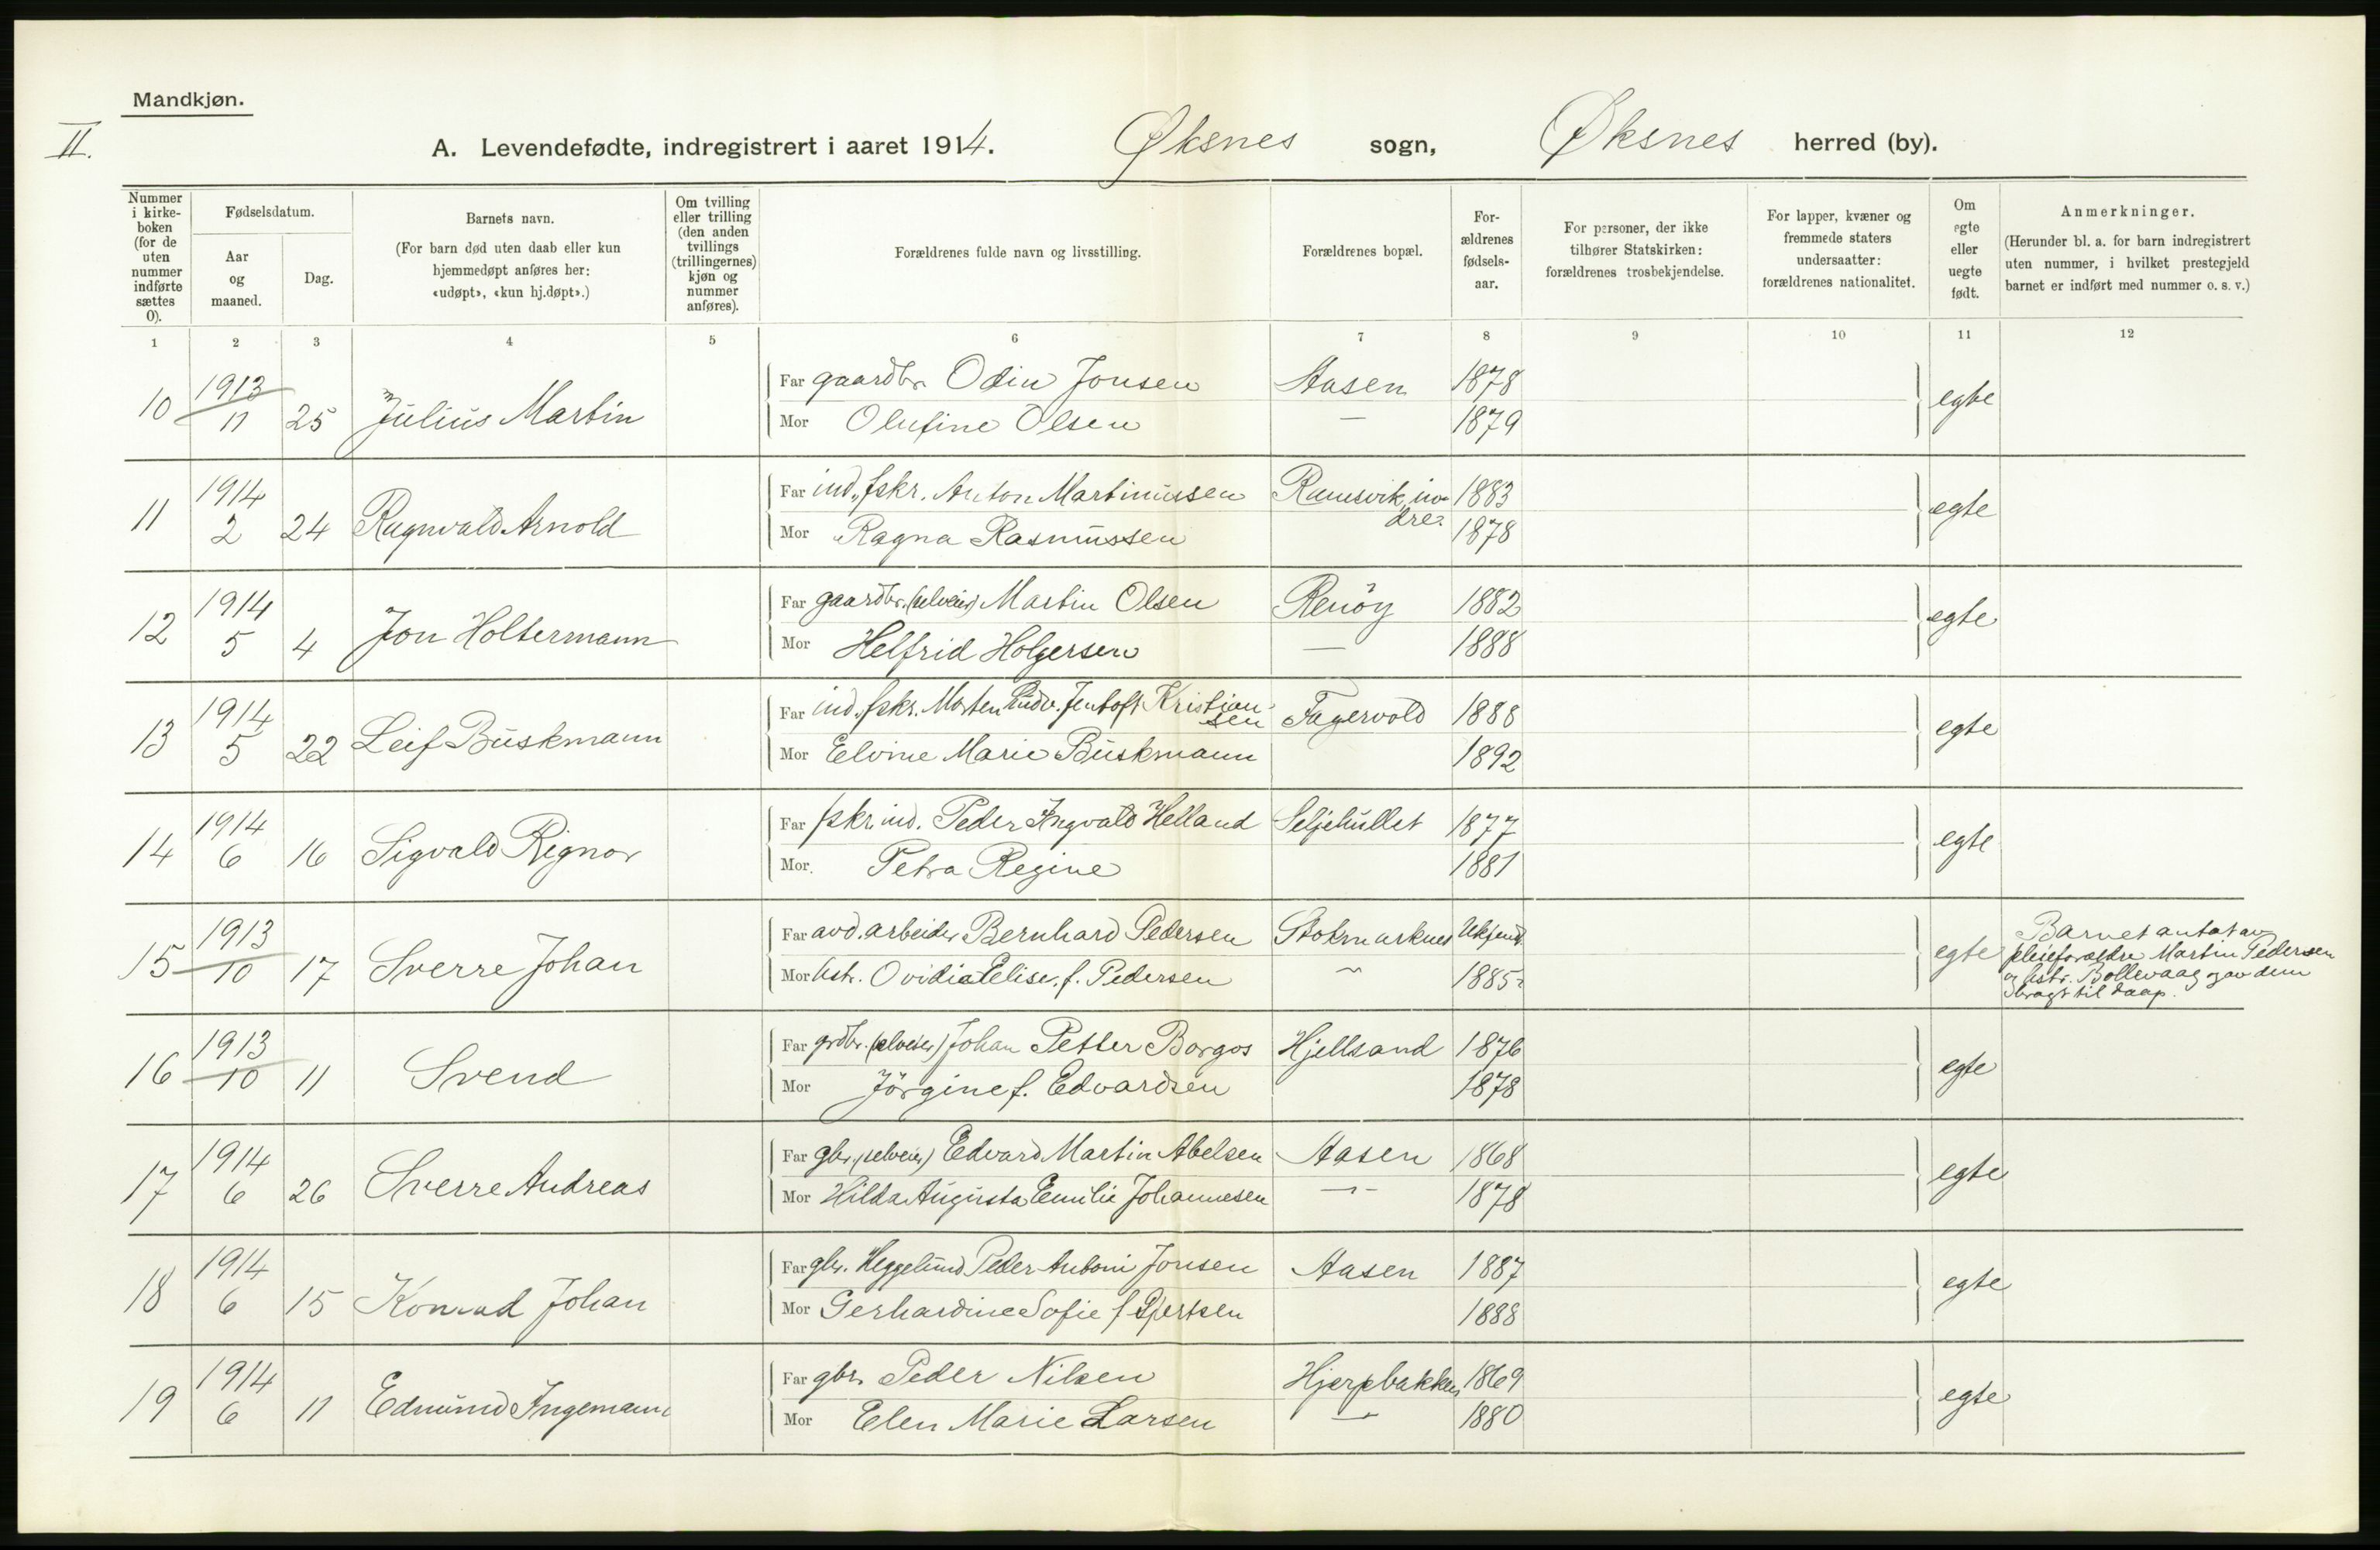 Mandkjøn.
II.
A. Levendefødte, indregistrert i aaret 1914. Øksnes sogn, Øksnes herred (by).
Nummer i kirke-boken (for de uten nummer indførte sættes 0).
Fødselsdatum.
Aar og maaned.
Dag.
Barnets navn.
(For barn død uten daab eller kun hjemmedøpt anføres her: «udøpt», «kun hj.døpt».)
Om tvilling eller trilling (den anden tvillings (trillingernes) kjøn og nummer anføres).
Forældrenes fulde navn og livsstilling.
Forældrenes bopæl.
For-ældrenes fødsels-aar.
For personer, der ikke tilhører Statskirken: forældrenes trosbekjendelse.
For lapper, kvæner og fremmede staters undersaatter: forældrenes nationalitet.
Om egte eller uegte født.
Anmerkninger.
(Herunder bl. a. for barn indregistrert uten nummer, i hvilket prestegjeld barnet er indført med nummer o. s. v.)
1 2 3 4 5 6 7 8 9 10 11 12
10 1913 11 25 Julius Martin Far gaardbr. Odin Jonsen Aasen 1878 egte
Mor Olufine Olsen — 1879
11 1914 2 24 Ragnvald Arnold Far ind., fskr. Anton Martinussen Ramsvik, in-dre. 1883 egte
Mor Ragna Rasmussen 1878
12 1914 5 4 Jon Holtermann Far gaardbr. (selveier) Martin Olsen Renöy 1882 egte
Mor Helfrid Holgersen — 1888
13 1914 5 22 Leif Buskmann Far ind., fskr. Morten Ludv. Jentoft Kristian-sen Fagervold 1888 egte
Mor Elvine Marie Buskmann 1892
14 1914 6 16 Sigvald Rignor Far fskr. ind. Peder Ingvald Helland Seljehullet 1877 egte
Mor. Petra Regine 1881
15 1913 10 17 Sverre Johan Far avd. arbeider Bernhard Pedersen Stokmarknes Ukjend. egte
Mor hstr. Ovidia Elise, f. Pedersen 〃 1885
Barnet antat av
pleieforældre Martin Pedersen
og hstr. Bollevaag og av dem
bragt til daap.
16 1913 10 11 Svend Far grdbr. (selveier) Johan Petter Borgos Hjellsand 1876 egte
Mor Jörgine f. Edvardsen 1878
17 1914 6 26 Sverre Andreas Far gbr. (selveier) Edvard Martin Abelsen Aasen 1868 egte
Mor Hilda Augusta Emilie Johannesen —〃— 1878
18 1914 6 15 Konrad Johan Far gbr. Heggelund Peder Antoni Jonsen Aasen 1887 egte
Mor Gerhardine Sofie f. Gjertsen 1888
19 1914 6 11 Edmund Ingemann Far gbr. Peder Nilsen Hjerpbakken 1869 egte
Mor Elen Marie Larsen —〃— 1880